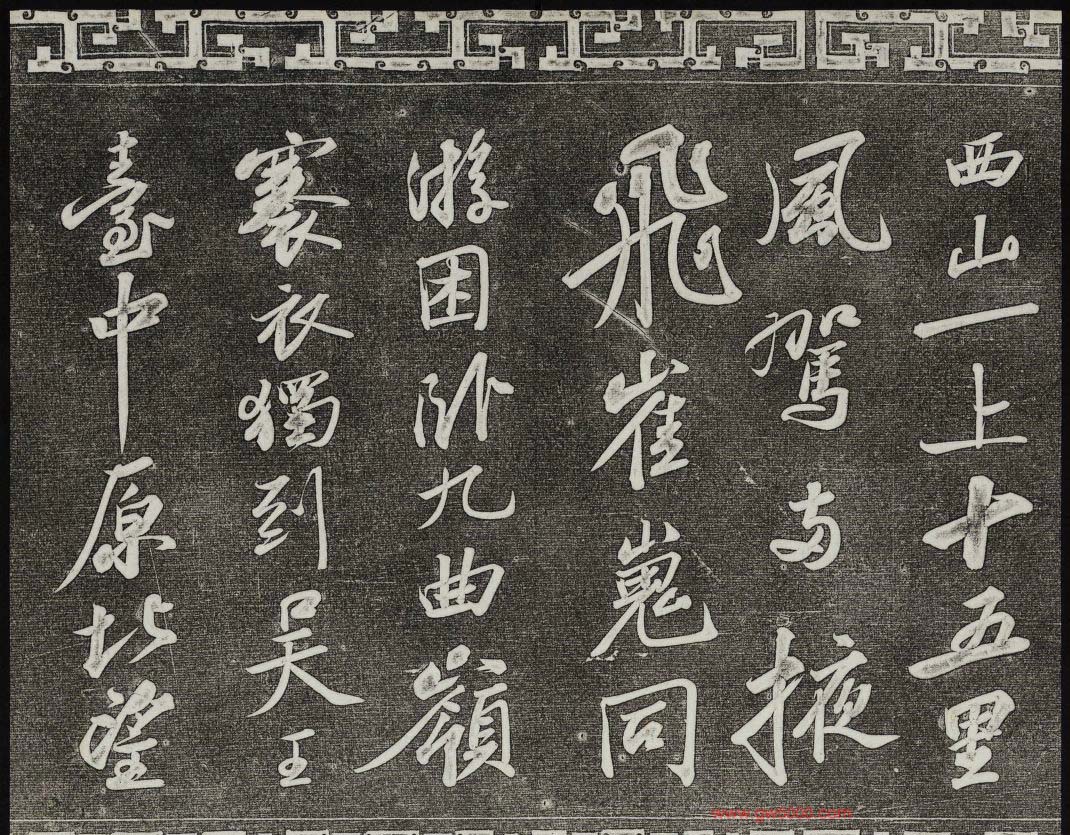 西山一上十五里
風駕兩掖
飛崔嵬同
游困臥九曲嶺
褰衣獨到吳王
臺中原北望